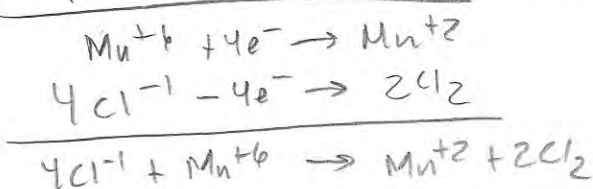 Mn⁺⁶ + 4e⁻ → Mn⁺²
4Cl⁻¹ − 4e⁻ → 2Cl₂
4Cl⁻¹ + Mn⁺⁶ → Mn⁺² + 2Cl₂